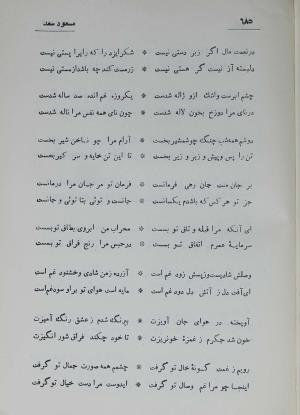 ۶۸۵
مسعود سعد
در نعمت مال اگر زبر دستی نیست * شکر ایزد را که رایرا پستی نیست
دلبسته آز نیست گر هستی نیست * زر مست کند چه باشد از مستی نیست
چشم ابرست و اشک ازو ژاله شدست * یکروزه غم انده صد ساله شدست
در نای مرا دو رخ بخون لاله شدست * چون نای همه نفس مرا ناله شدست
دوشم همه شب چنگ چو شمشیر بخست * آرام مرا چو ناخن شیر بخست
تن را پس و پیش و زیر و زبر بخست * تا این تن
بر جان منت جان رهی فرمانست * فرمان تو مر جان مرا درمانست
جز تو هر کس که باشدم یکسانست * جانست و توئی بتا توئی و جانست
ای آنکه مرا قبله و طاق تو بست * محراب من ابروی بطاق تو بست
سرمایه عمرم اتفاق تو بست * در حبس مرا رنج فراق تو بست
وصلش شادیست وز پسش زود غم است * آزرده زمن شادی و خشنود غم است
ای آفت دل ز آتش دل دود غم است * مایه است هوای تو برا و سود غم است
آویخته در هوای جان آویزت * بیرنگ شدم ز عشق رنگ آمیزت
خون شد جگرم ز غمزه خونریزت * تا خود چکند فراق شور انگیزت
رویم ز غمت گونه خال تو گرفت * چشمم همه صورت جمال تو گرفت
اینجا چو مرا غم وصال تو گرفت * ایدوست مرا دست خیال تو گرفت